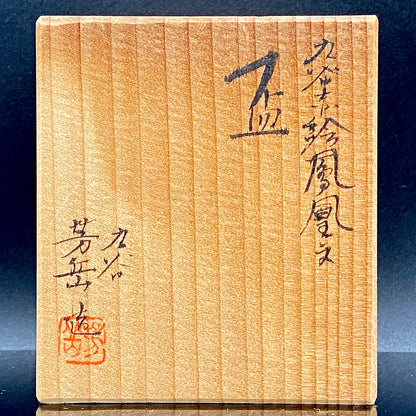 九谷赤絵鳳凰文
盃
九谷
芳岳造